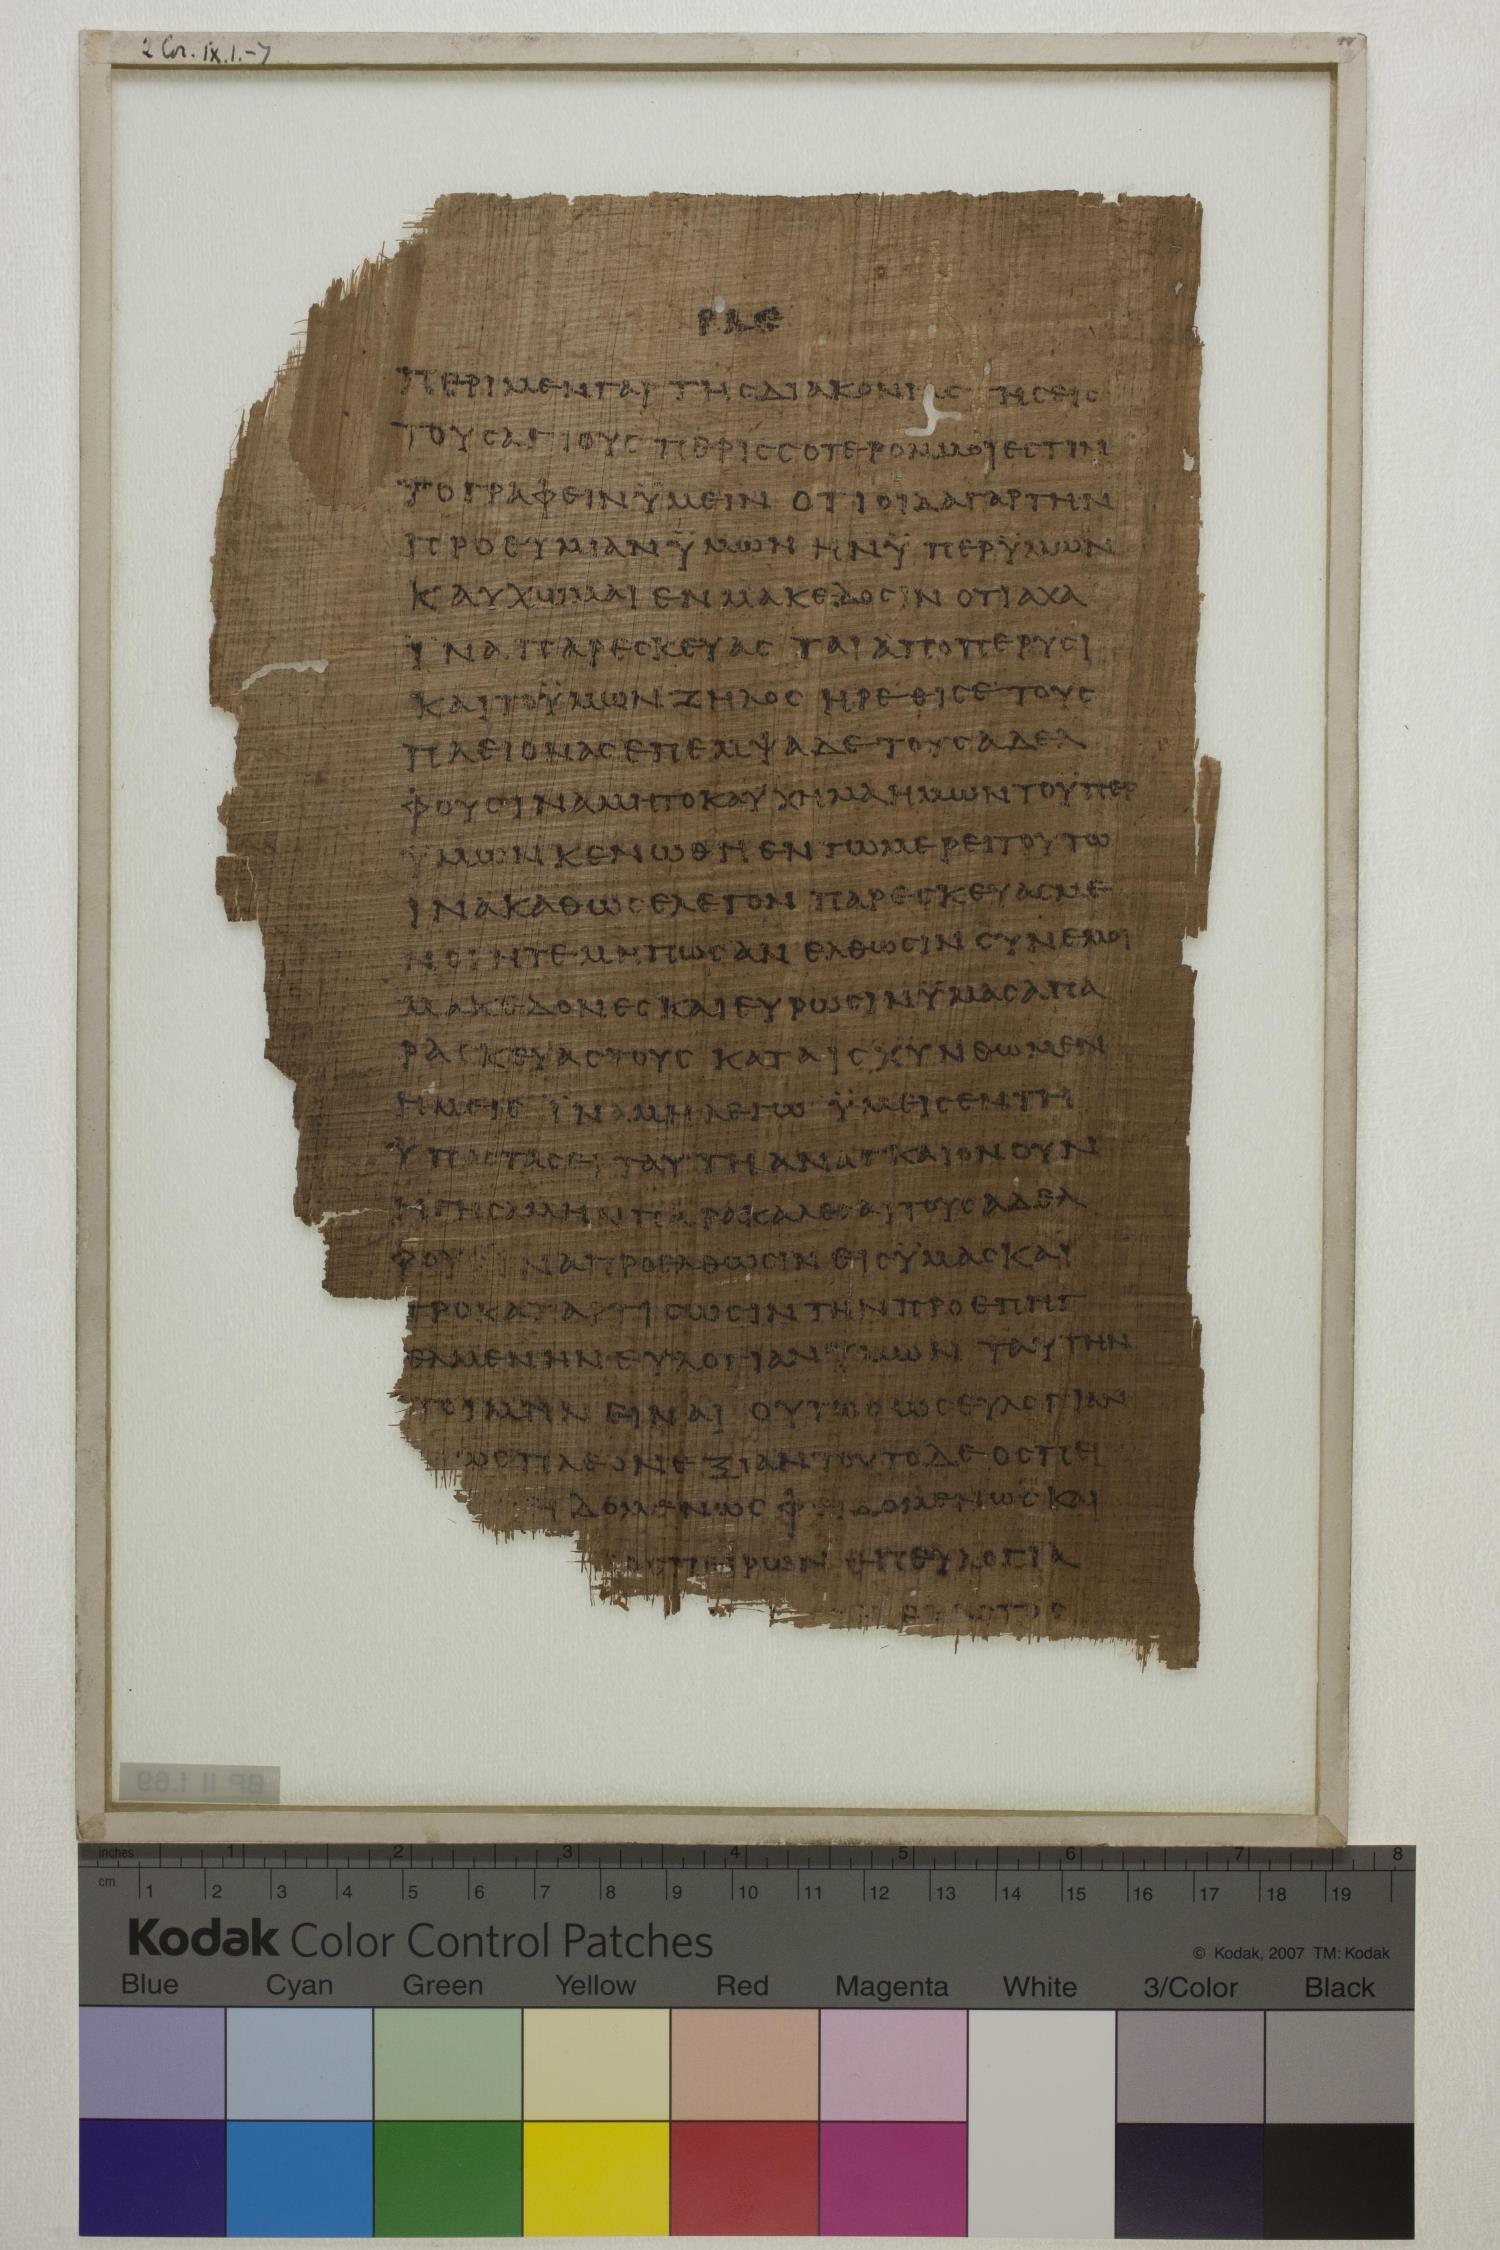 2 Cor. IX. 1.-7
ΡΛΕ
ΠΕΡΙΜΕΝΓΑΡ ΤΗϹΔΙΑΚΟΝΙΑϹ ΤΗϹΕΙϹ
ΤΟΥϹΑΓΙΟΥϹ ΠΕΡΙϹϹΟΤΕΡΟΝΜΟΙΕϹΤΙΝ
ΤΟΓΡΑΦΕΙΝΫΜΕΙΝ ΟΤΙΟΙΔΑΓΑΡΤΗΝ
ΠΡΟΘΥΜΙΑΝΫΜΩΝ ΗΝΫΠΕΡΫΜΩΝ
ΚΑΥΧΩΜΑΙΕΝΜΑΚΕΔΟϹΙΝΟΤΙΑΧΑ
ΙΝΑΠΑΡΕϹΚΕΥΑϹΤΑΙΑΠΟΠΕΡΥϹΙ
ΚΑΙΤΟΫΜΩΝΖΗΛΟϹ ΗΡΕΘΙϹΕΤΟΥϹ
ΠΛΕΙΟΝΑϹΕΠΕΜΨΑΔΕΤΟΥϹΑΔΕΛ
ΦΟΥϹΙΝΑΜΗΤΟΚΑΥΧΗΜΑΗΜΩΝΤΟΫΠΕΡ
ΫΜΩΝΚΕΝΩΘΗΕΝΤΩΜΕΡΕΙΤΟΥΤΩ
ΙΝΑΚΑΘΩϹΕΛΕΓΟΝ ΠΑΡΕϹΚΕΥΑϹΜΕ
ΝΟΙΗΤΕΜΗΠΩϹΑΝ ΕΛΘΩϹΙΝϹΥΝΕΜΟΙ
ΜΑΚΕΔΟΝΕϹΚΑΙΕΥΡΩϹΙΝΫΜΑϹΑΠΑ
ΡΑϹΚΕΥΑϹΤΟΥϹ ΚΑΤΑΙϹΧΥΝΘΩΜΕΝ
ΗΜΕΙϹ ΪΝΑΜΗΛΕΓΩ ΫΜΕΙϹΕΝΤΗ
ΫΠΟϹΤΑϹΕΙΤΑΥΤΗΑΝΑΓΚΑΙΟΝΟΥΝ
ΗΓΗϹΑΜΗΝΠΑΡΑΚΑΛΕϹΑΙΤΟΥϹΑΔΕΛ
ΦΟΥϹΙΝΑΠΡΟΕΛΘΩϹΙΝ ΕΙϹΫΜΑϹΚΑΙ
ΠΡΟΚΑΤΑΡΤΙϹΩϹΙΝΤΗΝΠΡΟΕΠΗΓ
ΕΛΜΕΝΗΝΕΥΛΟΓΙΑΝΫΜΩΝ ΤΑΥΤΗΝ
ΤΟΙΜΗΝ ΕΙΝΑΙ ΟΥΤΩϹΩϹΕΥΛΟΓΙΑΝ
ΩϹΠΛΕΟΝΕΞΙΑΝΤΟΥΤΟΔΕ ΟϹΠΕΙ
ΔΟΜΕΝΩϹ ΦΕΙΔΟΜΕΝΩϹΚΑΙ
ΟϹΠΕΙΡΩΝ ΕΠΕΥΛΟΓΙΑ
BP II f.69
inches 1 2 3 4 5 6 7 8
cm 1 2 3 4 5 6 7 8 9 10 11 12 13 14 15 16 17 18 19
Kodak Color Control Patches
© Kodak, 2007 TM: Kodak
Blue Cyan Green Yellow Red Magenta White 3/Color Black